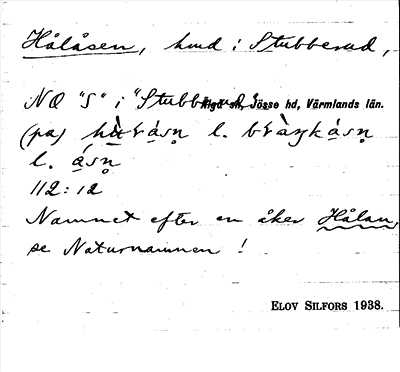 Hålåsen, hmd i Stubberud,
NO "S" i "Stubberud" Älgå sn, Jösse hd, Värmlands län.
(på) l. 
l. 
112:12
Namnet efter en åker Hålan,
se Naturnamnen!
ELOV SILFORS 1938.